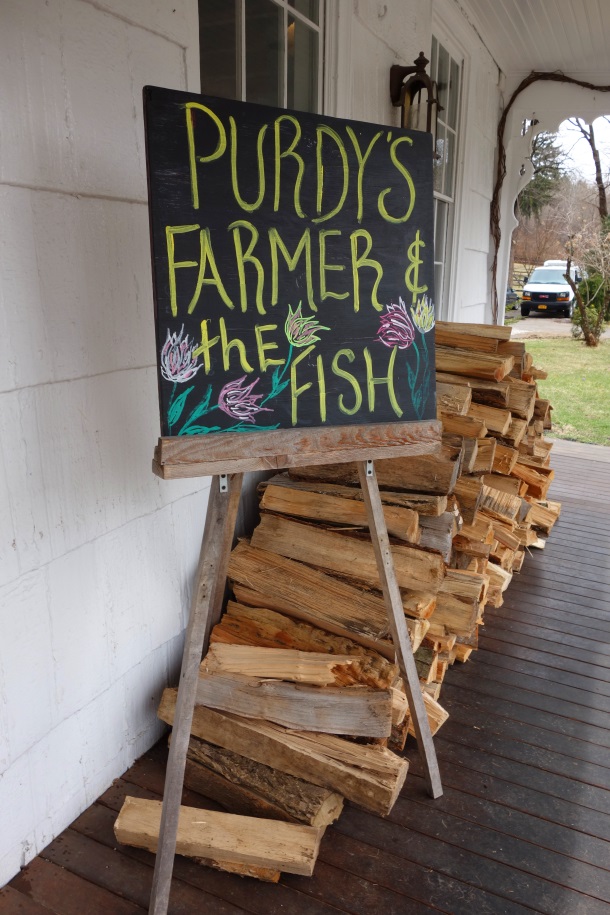 PURDY'S
FARMER &
the FISH